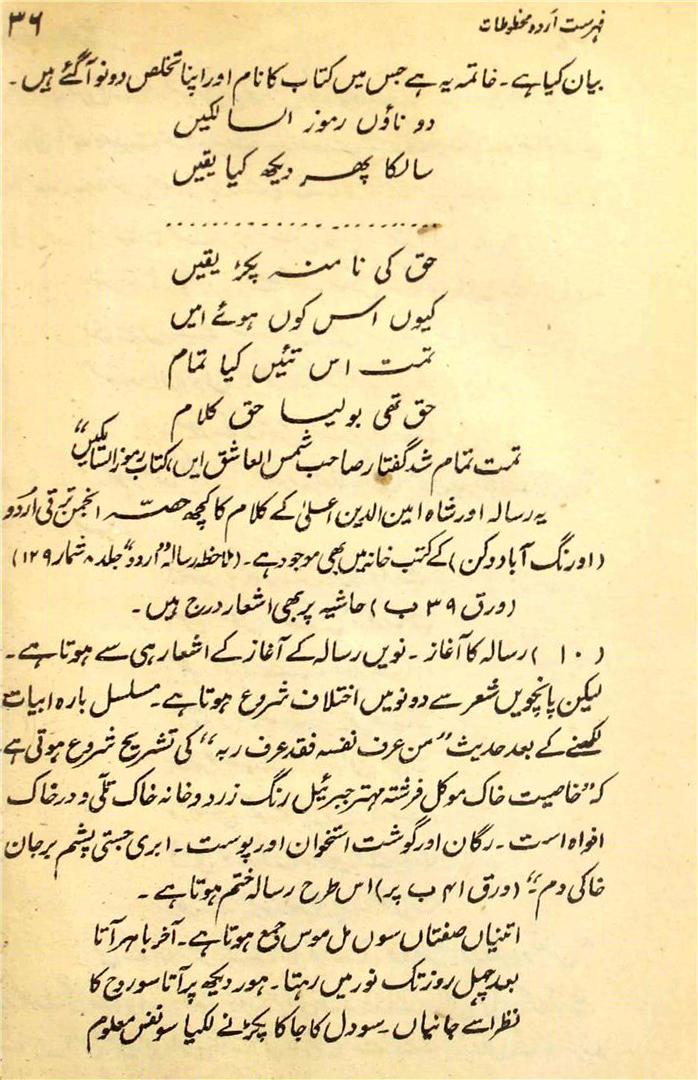 فہرست اردو مخطوطات
۳۶
بیان کیا ہے۔ خاتمہ یہ ہے جس میں کتاب کا نام اور اپنا تخلص دونو آگئے ہیں۔
دو ناؤں رموز السالکیں
سالکا پھر دیکھ کیا یقیں
..............................
حق کی نا منہ پکڑ یقیں
کیوں اس کوں ہوئے امیں
تمت اس تئیں کیا تمام
حق تھی بولیا حق کلام
تمت تمام شد گفتار صاحب شمس العاشق ایں، کتاب رموز السالکیں“
یہ رسالہ اور شاہ امین الدین اعلیٰ کے کلام کا کچھ حصہ انجمن ترقی اُردو
(اورنگ آباد دکن) کے کتب خانہ میں بھی موجود ہے۔ (ملاحظہ رسالہ ”اردو“ جلد ۸ شمار ۱۲۹)
(ورق ۳۹ ب) حاشیہ پر بھی اشعار درج ہیں۔
(۱۰) رسالہ کا آغاز۔ نویں رسالہ کے آغاز کے اشعار ہی سے ہوتا ہے۔
لیکن پانچویں شعر سے دونو میں اختلاف شروع ہوتا ہے۔ مسلسل بارہ ابیات
لکھنے کے بعد حدیث ”من عرف نفسہ فقد عرف ربہ“ کی تشریح شروع ہوتی ہے
کہ ”خاصیت خاک موکل فرشتہ مہتر جبرئیل رنگ زرد و خانہ خاک تلی و در خاک
افواہ است۔ رگان اور گوشت استخوان اور پوست۔ ابری جستی پشم بر جان
خاکی دم۔“ (ورق ۴۱ ب پر) اس طرح رسالہ ختم ہوتا ہے۔
اتنیاں صفتاں سوں مل موس جمع ہوتا ہے۔ آخر باہر آتا
بعد چہل روز تک نور میں رہتا۔ ہور دیکھ پر آتا سو روح کا
نظر اسے جانیاں۔ سو دل کا جاکا پکڑنے لکیا سو نفس معلوم